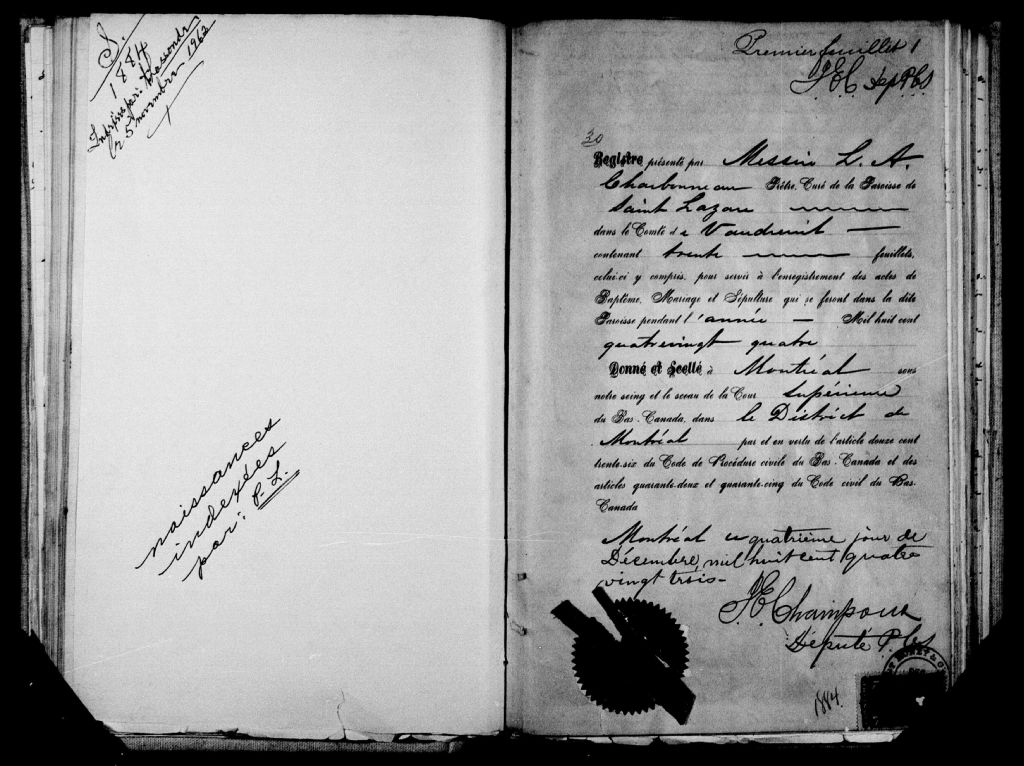 S.
1884
5 novembre 1962
naissances
indexées
par: P. L.
Premier feuillet 1
J.E.C. Dep P.C.S
30
Registre présenté par Messire L. A.
Charbonneau Prêtre, Curé de la Paroisse de
Saint Lazare
dans le Comté de Vaudreuil —
contenant trente feuillets,
celui-ci y compris, pour servir à l'enregistrement des actes de
Baptême, Mariage et Sépulture qui se feront dans la dite
Paroisse pendant l'année — Mil huit cent
quatrevingt quatre
Donné et Scellé à Montréal sous
notre seing et le sceau de la Cour Supérieure
du Bas-Canada, dans le District de
Montréal par et en vertu de l'article douze cent
trente-six du Code de Procédure civile du Bas-Canada et des
articles quarante-deux et quarante-cinq du Code civil du Bas-
Canada
Montréal ce quatrième jour de
Décembre, mil huit cent quatre
vingt trois-
J.E. Champoux
Député P.C.S
1884.